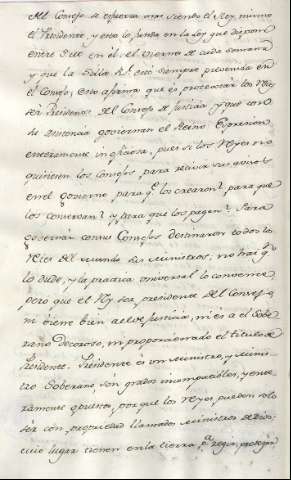 del Consejo se esfuerza mas siendo el Rey mismo
el Presidente, y esto lo funda en la Ley que dispone
entre Dios en él, el viernes de cada semana
y que la Silla Rl. esté siempre prevenida en
el Consejo; esto afirma que es protestar los Reyes
ser Presidentes del Consejo de Justicia, y que con
su sentencia goviernan el Reyno. Expresion
enteramente ingloriosa, pues si los Reyes no
quisiesen los consejos para recivir sus avisos
en el govierno, para qe. los crearon? para que
los conservan? y para que los pagan? Para
governar con sus Consejos destinaron todos los
Reyes del mundo sus ministros, no hai qn.
lo dude, y la practica universal lo convence
pero que el Rey sea presidente del Consejo,
ni viene bien a el de Justicia, ni es a el Sobe
rano Decoroso, ni proporcionado el titulo de
Presidente. Presidente es un Ministro, y Minis
tro Soberano, son grados incompatibles, y ente
ramente opuestos, por que los Reyes pueden solo
ser con propiedad llamados Ministros de Dios,
cuio lugar tienen en la tierra, pa. regir, proteger